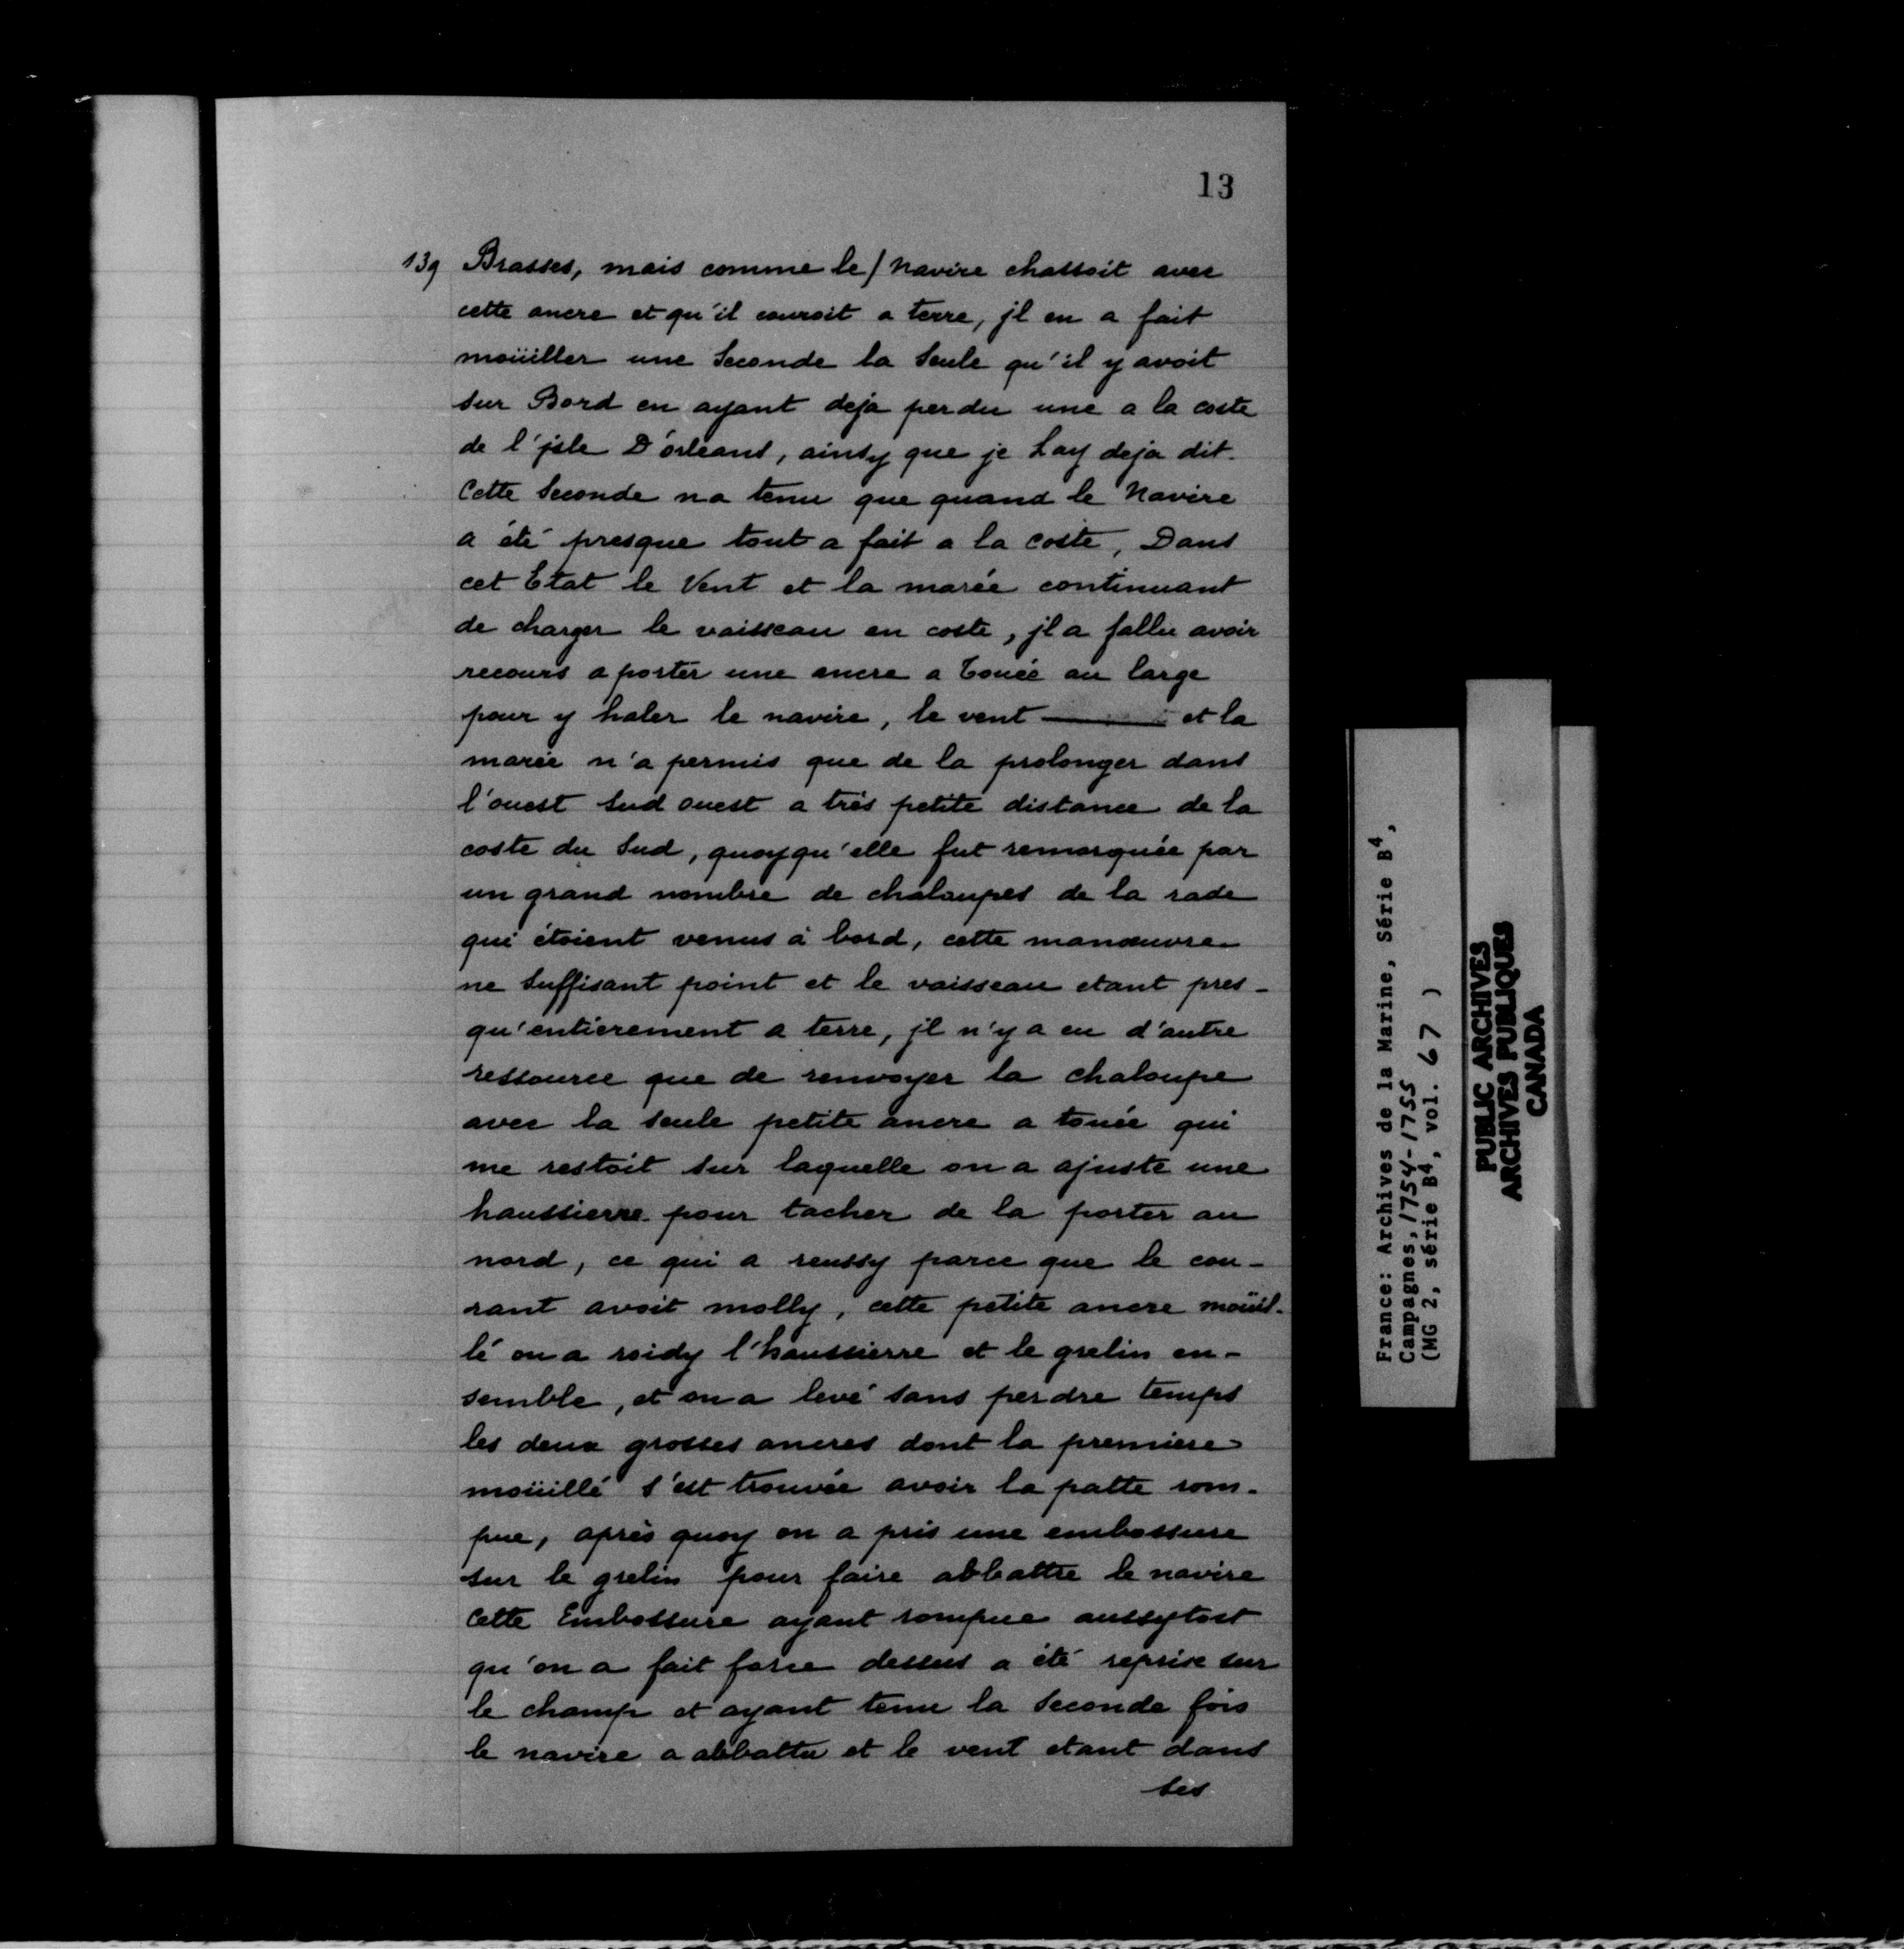 13
139 Brasses, mais comme le / Navire chassoit avec
cette ancre et qu'il couroit a terre, jl en a fait
moüiller une Seconde la Seule qu'il y avoit
sur Bord en ayant deja perdu une a la coste
de l'jsle D'orleans, ainsy que je Lay deja dit.
Cette Seconde na tenu que quand le Navire
a été presque tout a fait a la Coste, Dans
cet Etat le Vent et la marée continuant
de charger le vaisseau en coste, jl a fallu avoir
recours a porter une ancre a Touée au large
pour y haler le navire, le vent ——— et la
marée n'a permis que de la prolonger dans
l'ouest Sud ouest a très petite distance de la
coste du Sud, quoyqu'elle fut remorquée par
un grand nombre de chaloupes de la rade
qui étoient venus à bord, cette manœuvre
ne Suffisant point et le vaisseau etant pres-
qu'entièrement a terre, jl n'y a eu d'autre
ressource que de renvoyer la chaloupe
avec la seule petite ancre a touée qui
me restoit sur laquelle on a ajusté une
haussierre pour tacher de la porter au
nord, ce qui a reussy parce que le cou-
rant avoit molly, cette petite ancre moüil-
lé on a roidy l'haussierre et le grelin en-
semble, et on a levé sans perdre temps
les deux grosses ancres dont la premiere
moüillé s'est trouvée avoir la patte rom-
pue, après quoy on a pris une embossure
sur le grelin pour faire abbattre le navire
Cette Embossure ayant rompue aussytost
qu'on a fait force dessus a été reprise sur
le champ et ayant tenu la Seconde fois
le navire a abbattu et le vent etant dans
ses
France: Archives de la Marine, Série B4,
Campagnes, 1754-1755
(MG 2, série B4, vol. 67 )
PUBLIC ARCHIVES
ARCHIVES PUBLIQUES
CANADA